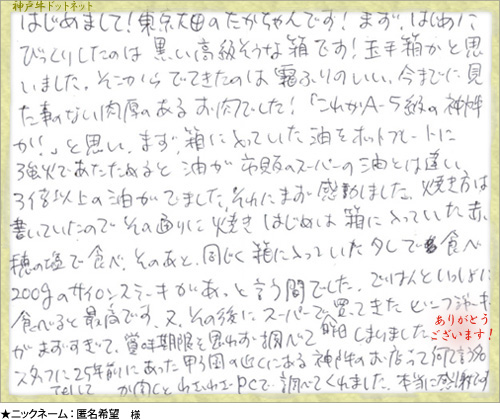 神戸牛ドットネット
はじめまして!東京大田のたかちゃんです!まず、はじめに
びっくりしたのは黒い高級そうな箱です!玉手箱かと思
いました。そこからでてきたのは霜ふりのいい、今までに見
た事のない肉厚のあるお肉でした!「これがA-5級の神戸牛
か!」と思い、まず、箱に入っていた油をホットプレートに
強火であたためると油が市販のスーパーの油とは違い
3倍以上の油がでました。それにまず感動しました。焼き方は
書いていたのでその通りに焼きはじめは箱に入っていた赤
穂の塩で食べ、そのあと、同じく箱に入っていたタレで食べ
200gのサイロンステーキがあっと言う間でした。ごはんといっしょに
食べると最高です。又、その後にスーパーで買ってきたビーフステーキ
がまずすぎて、賞味期限を思わず調べてしまいました
ありがとう
ございます!
スタッフに25年前にあった甲子園の近くにある神戸牛のお店って何て言う名
telして か聞くとわざわざPCで調べてくれました。本当に感謝です
★ニックネーム:匿名希望 様